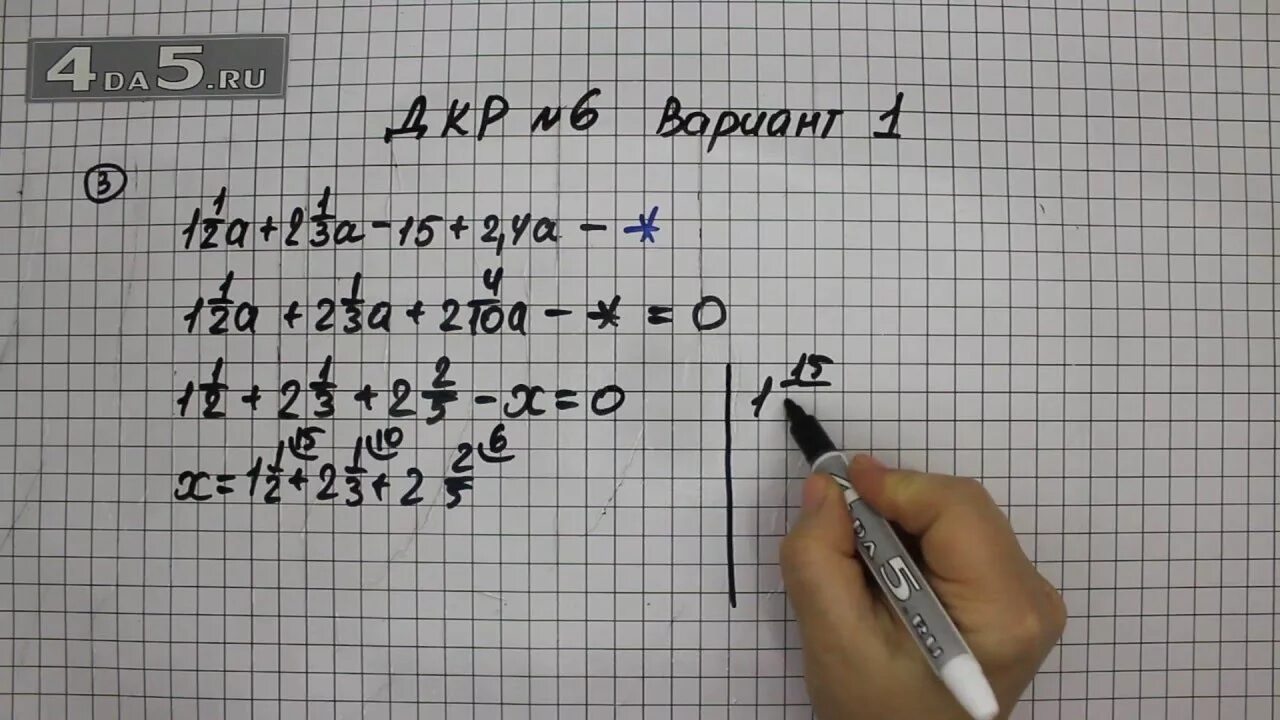 4DA5.RU
ДКР №6 Вариант 1
3
1 1/2 a + 2 1/3 a - 15 + 2,4a - *
1 1/2 a + 2 1/3 a + 2 4/10 a - * = 0
1 1/2 + 2 1/3 + 2 2/5 - x = 0
x = 1 1/2 15 + 2 1/3 10 + 2 2/5 6
1 15
5.RU